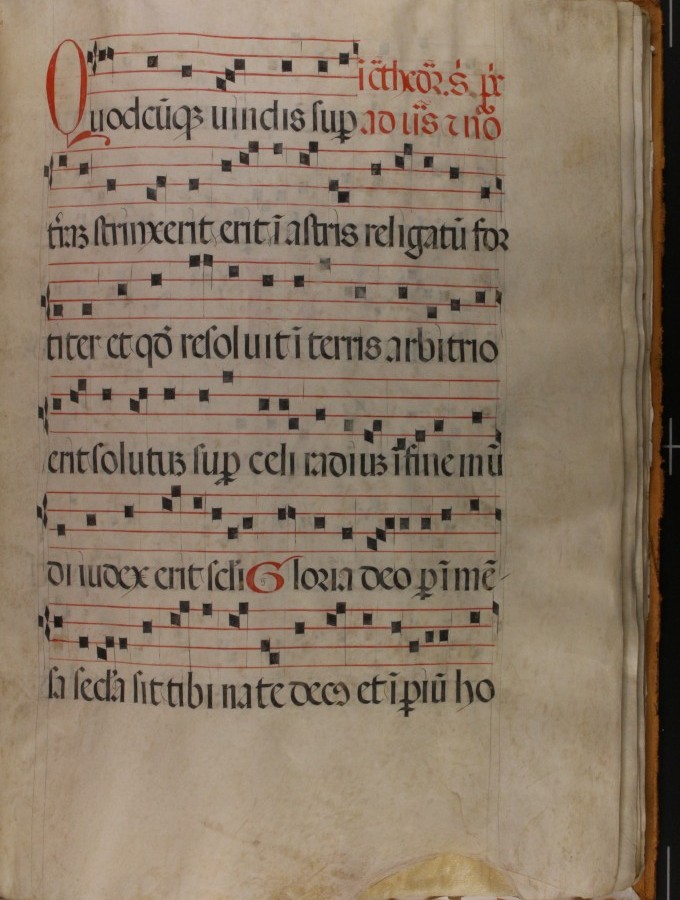 Quodcūqꝫ uinclis suꝑ
ad
tr̄as strinxerit erit ī astris religatū for
titer et qō resoluit ī terris arbitrio
erit solutus suꝑ celi radius ī fine mū
di iudex erit scli Gloria deo ꝑ īmē
sa secla sit tibi nate decꝯ et īꝑiū ho